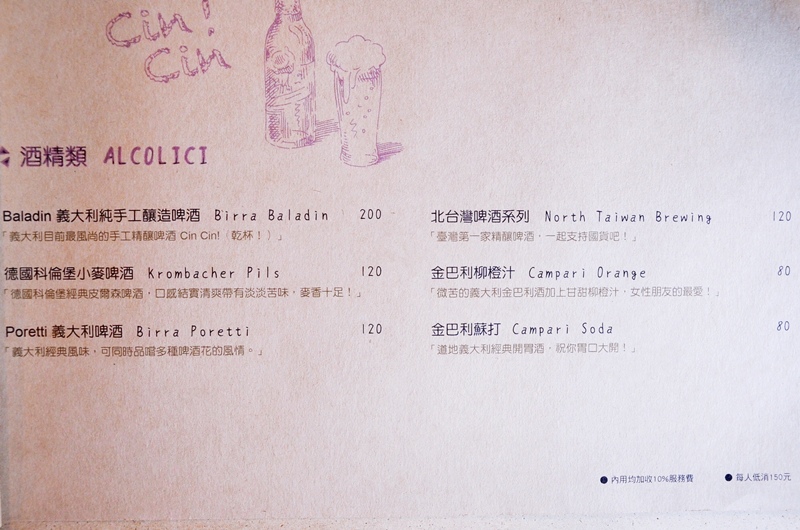 Cin!
Cin
酒精類 ALCOLICI
Baladin 義大利純手工釀造啤酒 Birra Baladin 200
「義大利目前最風尚的手工精釀啤酒 Cin Cin!（乾杯！）」
德國科倫堡小麥啤酒 Krombacher Pils 120
「德國科倫堡經典皮爾森啤酒，口感結實清爽帶有淡淡苦味，麥香十足！」
Poretti 義大利啤酒 Birra Poretti 120
「義大利經典風味，可同時品嚐多種啤酒花的風情。」
北台灣啤酒系列 North Taiwan Brewing 120
「臺灣第一家精釀啤酒，一起支持國貨吧！」
金巴利柳橙汁 Campari Orange 80
「微苦的義大利金巴利酒加上甘甜柳橙汁，女性朋友的最愛！」
金巴利蘇打 Campari Soda 80
「道地義大利經典開胃酒，祝你胃口大開！」
●內用均加收10%服務費 ●每人低消150元